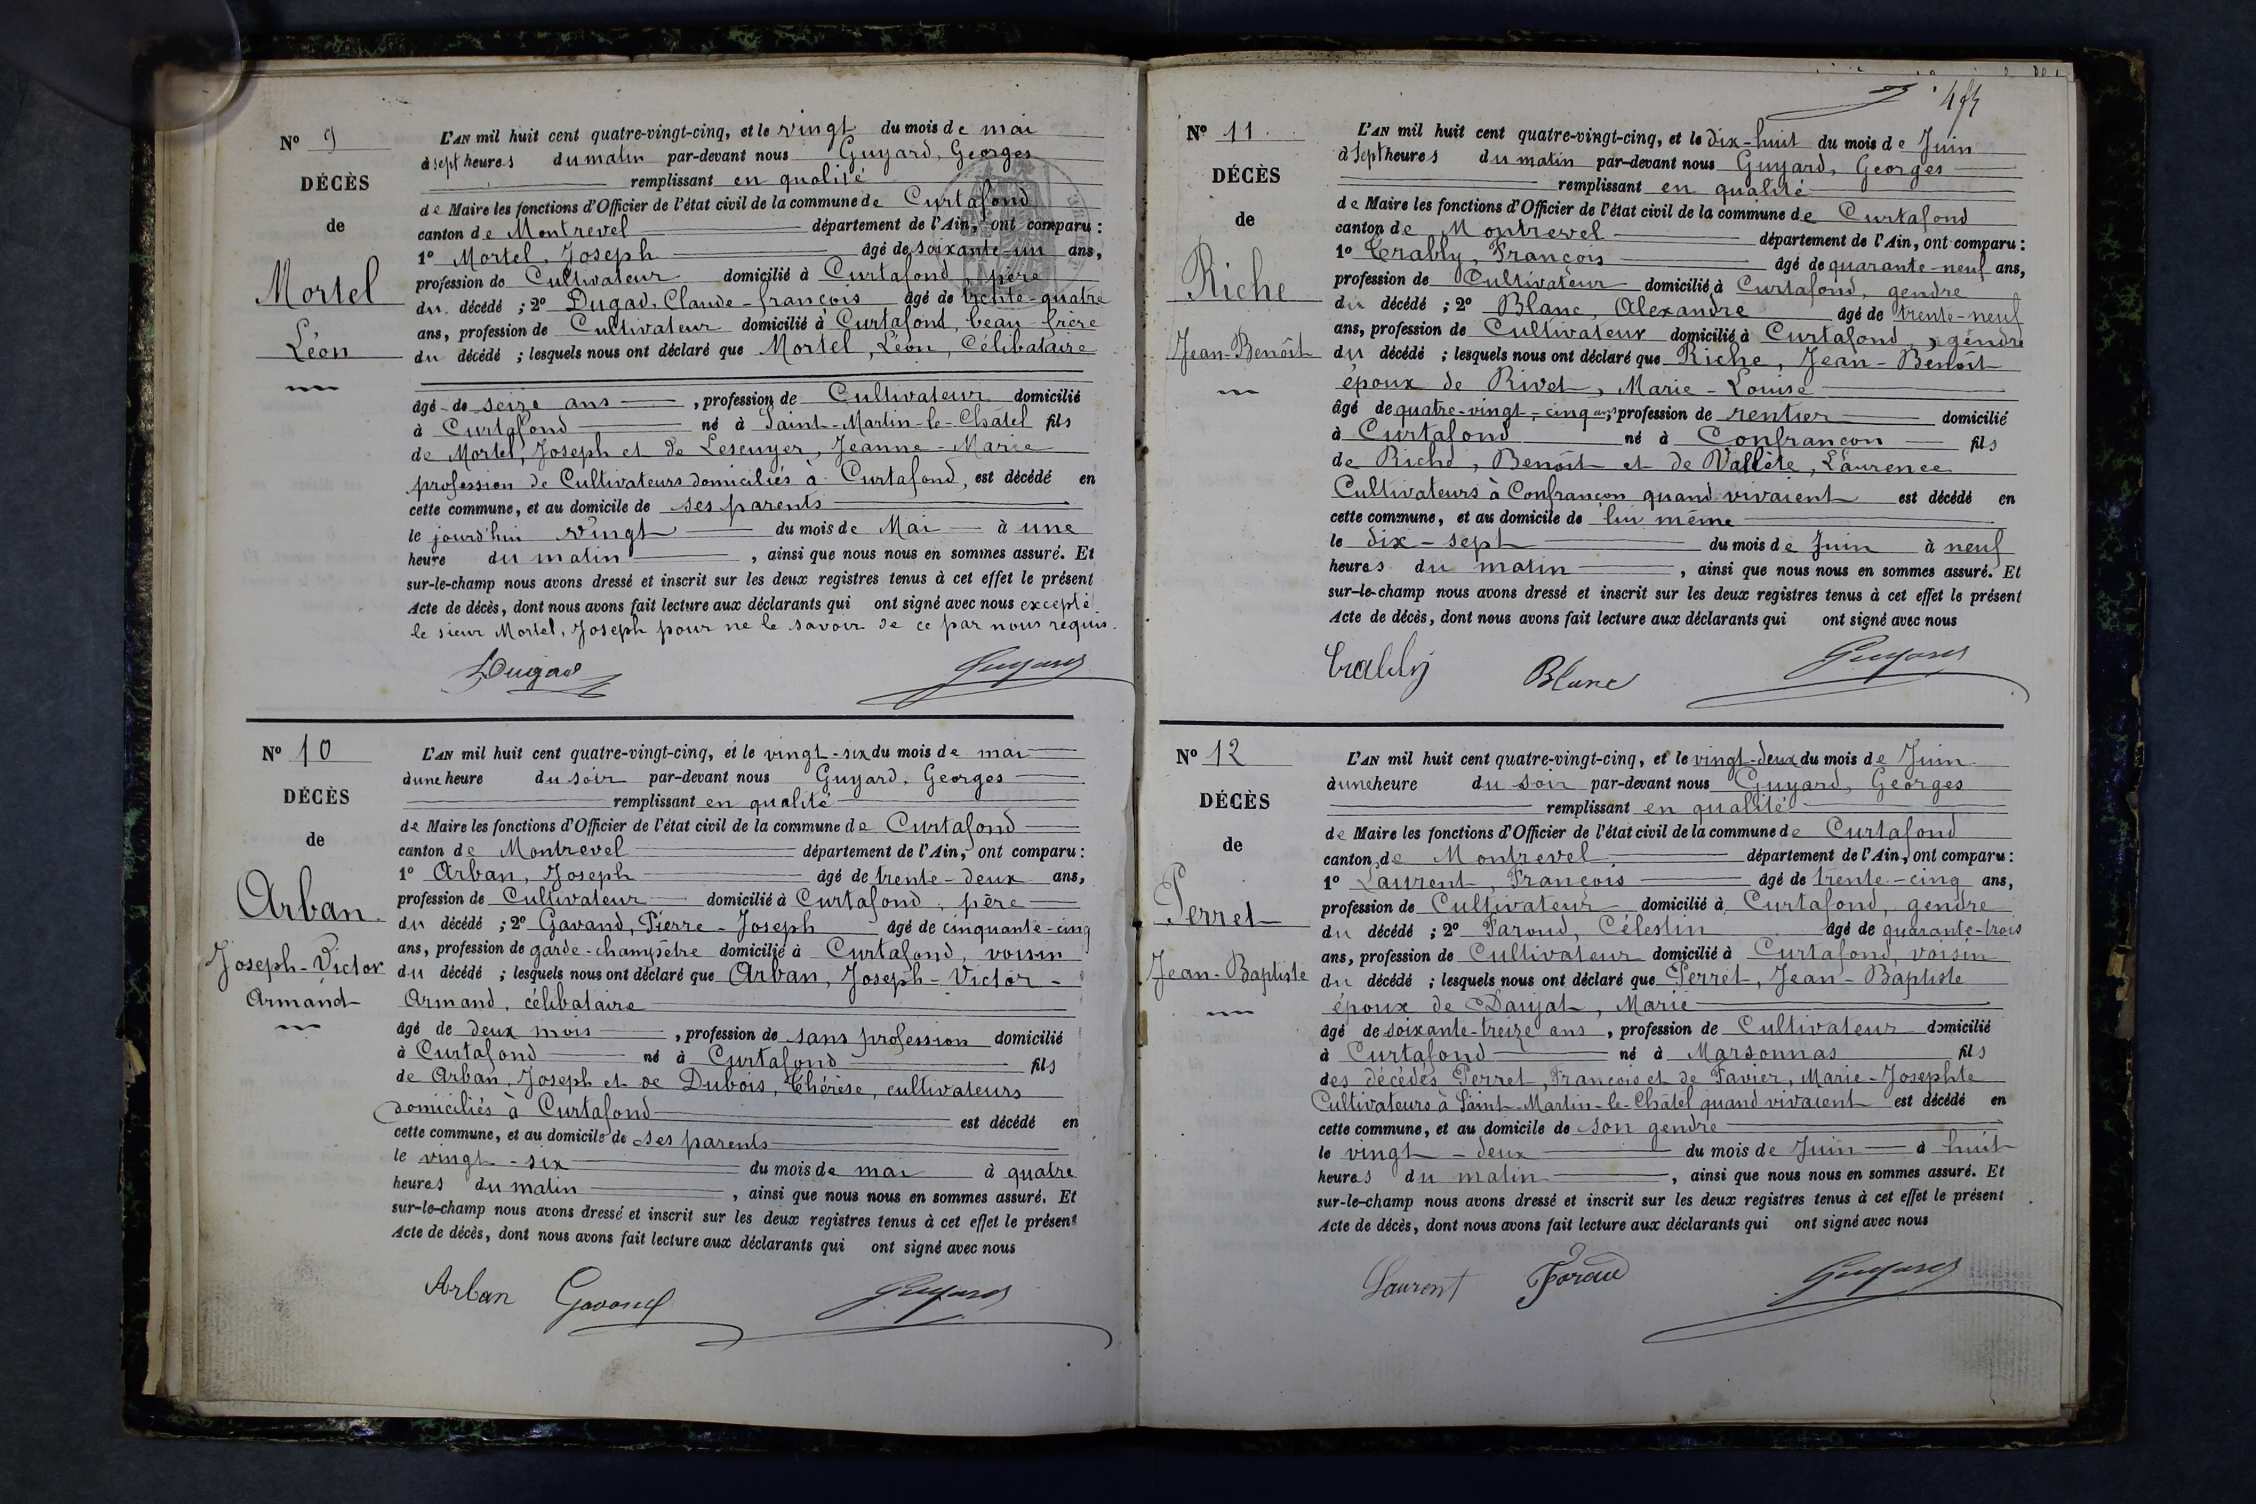 Nº 9
DÉCÈS
de
Mortel
Léon
L'AN mil huit cent quatre-vingt-cinq, et le vingt du mois de mai
à sept heures du matin par-devant nous Guyard, Georges
remplissant en qualité
de Maire les fonctions d'Officier de l'état civil de la commune de Curtafond
canton de Montrevel département de l'Ain, ont comparu :
1º Mortel, Joseph âgé de soixante-un ans,
profession de Cultivateur domicilié à Curtafond, père
du décédé ; 2º Dugad, Claude-françois âgé de trente-quatre
ans, profession de Cultivateur domicilié à Curtafond, beau-frère
du décédé ; lesquels nous ont déclaré que Mortel, Léon, Célibataire
âgé de seize ans, profession de Cultivateur domicilié
à Curtafond né à Saint-Martin-le-Chatel fils
de Mortel, Joseph et de Lescuyer, Jeanne-Marie
profession de Cultivateurs domiciliés à Curtafond, est décédé en
cette commune, et au domicile de ses parents
le jourd'hui vingt du mois de Mai à une
heure du matin, ainsi que nous nous en sommes assuré. Et
sur-le-champ nous avons dressé et inscrit sur les deux registres tenus à cet effet le présent
Acte de décès, dont nous avons fait lecture aux déclarants qui ont signé avec nous excepté
le sieur Mortel, Joseph pour ne le savoir de ce par nous requis.
Dugad Guyard
Nº 10
DÉCÈS
de
Arban
Joseph-Victor
Armand
L'AN mil huit cent quatre-vingt-cinq, et le vingt-six du mois de mai
à une heure du soir par-devant nous Guyard, Georges
remplissant en qualité
de Maire les fonctions d'Officier de l'état civil de la commune de Curtafond
canton de Montrevel département de l'Ain, ont comparu :
1º Arban, Joseph âgé de trente-deux ans,
profession de Cultivateur domicilié à Curtafond, père
du décédé ; 2º Gavand, Pierre-Joseph âgé de cinquante-cinq
ans, profession de garde-champêtre domicilié à Curtafond, voisin
du décédé ; lesquels nous ont déclaré que Arban, Joseph-Victor-
Armand, célibataire
âgé de deux mois, profession de sans profession domicilié
à Curtafond né à Curtafond fils
de Arban, Joseph et de Dubois, Thérèse, cultivateurs
domiciliés à Curtafond est décédé en
cette commune, et au domicile de ses parents
le vingt-six du mois de mai à quatre
heures du matin, ainsi que nous nous en sommes assuré. Et
sur-le-champ nous avons dressé et inscrit sur les deux registres tenus à cet effet le présent
Acte de décès, dont nous avons fait lecture aux déclarants qui ont signé avec nous
Arban Gavand Guyard
Nº 11
DÉCÈS
de
Riche
Jean-Benoît
L'AN mil huit cent quatre-vingt-cinq, et le dix-huit du mois de Juin
à Sept heures du matin par-devant nous Guyard, Georges
remplissant en qualité
de Maire les fonctions d'Officier de l'état civil de la commune de Curtafond
canton de Montrevel département de l'Ain, ont comparu :
1º Trably, François âgé de quarante-neuf ans,
profession de Cultivateur domicilié à Curtafond, gendre
du décédé ; 2º Blanc, Alexandre âgé de trente-neuf
ans, profession de Cultivateur domicilié à Curtafond, gendre
du décédé ; lesquels nous ont déclaré que Riche, Jean-Benoît
époux de Rivet, Marie-Louise
âgé de quatre-vingt-cinq ans, profession de rentier domicilié
à Curtafond né à Confrançon fils
de Riche, Benoît et de Vallète, Laurence
Cultivateurs à Confrançon quand vivaient est décédé en
cette commune, et au domicile de lui même
le dix-sept du mois de Juin à neuf
heures du matin, ainsi que nous nous en sommes assuré. Et
sur-le-champ nous avons dressé et inscrit sur les deux registres tenus à cet effet le présent
Acte de décès, dont nous avons fait lecture aux déclarants qui ont signé avec nous
Trably Blanc Guyard
Nº 12
DÉCÈS
de
Perret
Jean-Baptiste
L'AN mil huit cent quatre-vingt-cinq, et le vingt-deux du mois de Juin
à une heure du soir par-devant nous Guyard, Georges
remplissant en qualité
de Maire les fonctions d'Officier de l'état civil de la commune de Curtafond
canton de Montrevel département de l'Ain, ont comparu :
1º Laurent, François âgé de trente-cinq ans,
profession de Cultivateur domicilié à Curtafond, gendre
du décédé ; 2º Faroud, Célestin âgé de quarante-trois
ans, profession de Cultivateur domicilié à Curtafond, voisin
du décédé ; lesquels nous ont déclaré que Perret, Jean-Baptiste
époux de Daujat, Marie
âgé de soixante-treize ans, profession de Cultivateur domicilié
à Curtafond né à Marsonnas fils
des décédés Perret, François et de Favier, Marie-Josephte
Cultivateurs à Saint-Martin-le-Châtel quand vivaient est décédé en
cette commune, et au domicile de son gendre
le vingt-deux du mois de Juin à huit
heures du matin, ainsi que nous nous en sommes assuré. Et
sur-le-champ nous avons dressé et inscrit sur les deux registres tenus à cet effet le présent
Acte de décès, dont nous avons fait lecture aux déclarants qui ont signé avec nous
Laurent Guyard